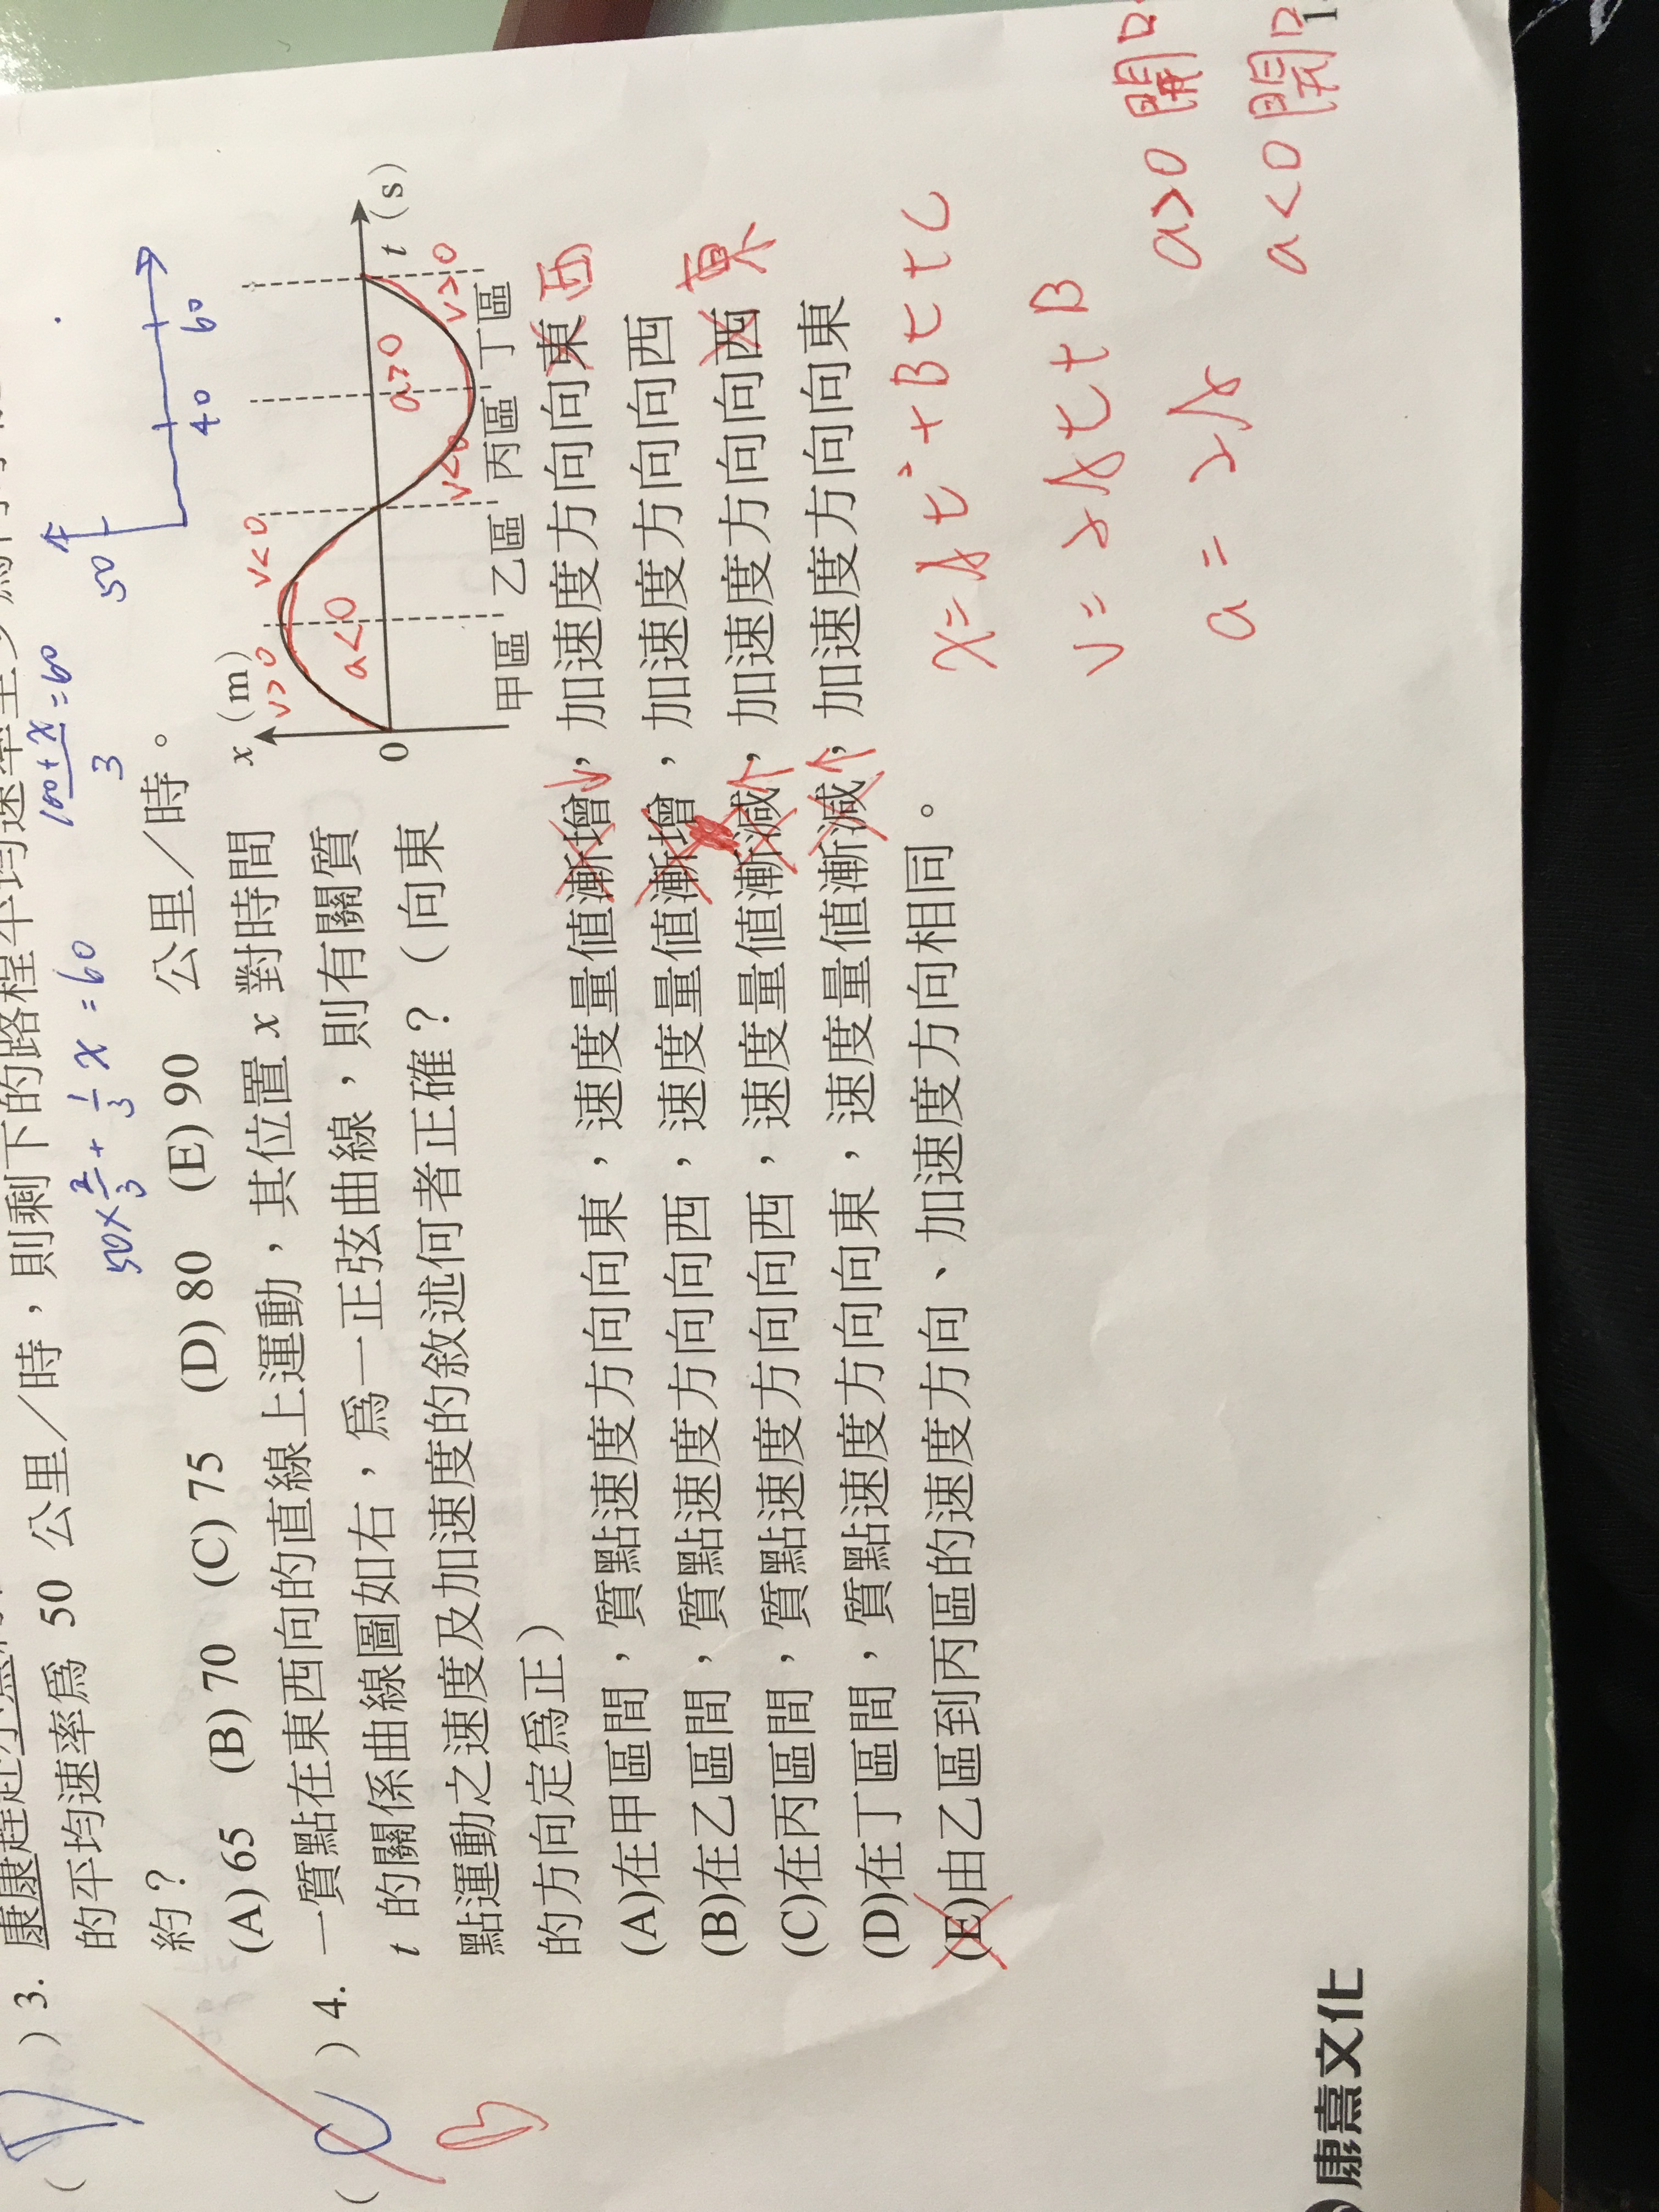 )3. 康康趕赴小熹
則剩下的路程平均速率至少
的平均速率爲 50 公里／時，
50×2/3 + 1/3 x = 60
100+x/3 = 60
50
40 60
約？
(A) 65 (B) 70 (C) 75 (D) 80 (E) 90 公里／時。
( )4. 一質點在東西向的直線上運動，其位置 x 對時間
t 的關係曲線圖如右，爲一正弦曲線，則有關質
點運動之速度及加速度的敘述何者正確？（向東
的方向定爲正）
x (m)
v>0 v<0
a<0 a>0
v<0 v>0
0 t (s)
甲區 乙區 丙區 丁區
(A)在甲區間，質點速度方向向東，速度量值漸增↓，加速度方向向東 西
(B)在乙區間，質點速度方向向西，速度量值漸增，加速度方向向西
(C)在丙區間，質點速度方向向西，速度量值漸減↑，加速度方向向西 東
(D)在丁區間，質點速度方向向東，速度量值漸減↑，加速度方向向東
(E)由乙區到丙區的速度方向、加速度方向相同。
B
x = At² + Bt + C
v = 2At + B
a = 2A
a>0 開口
a<0 開口
康熹文化
1